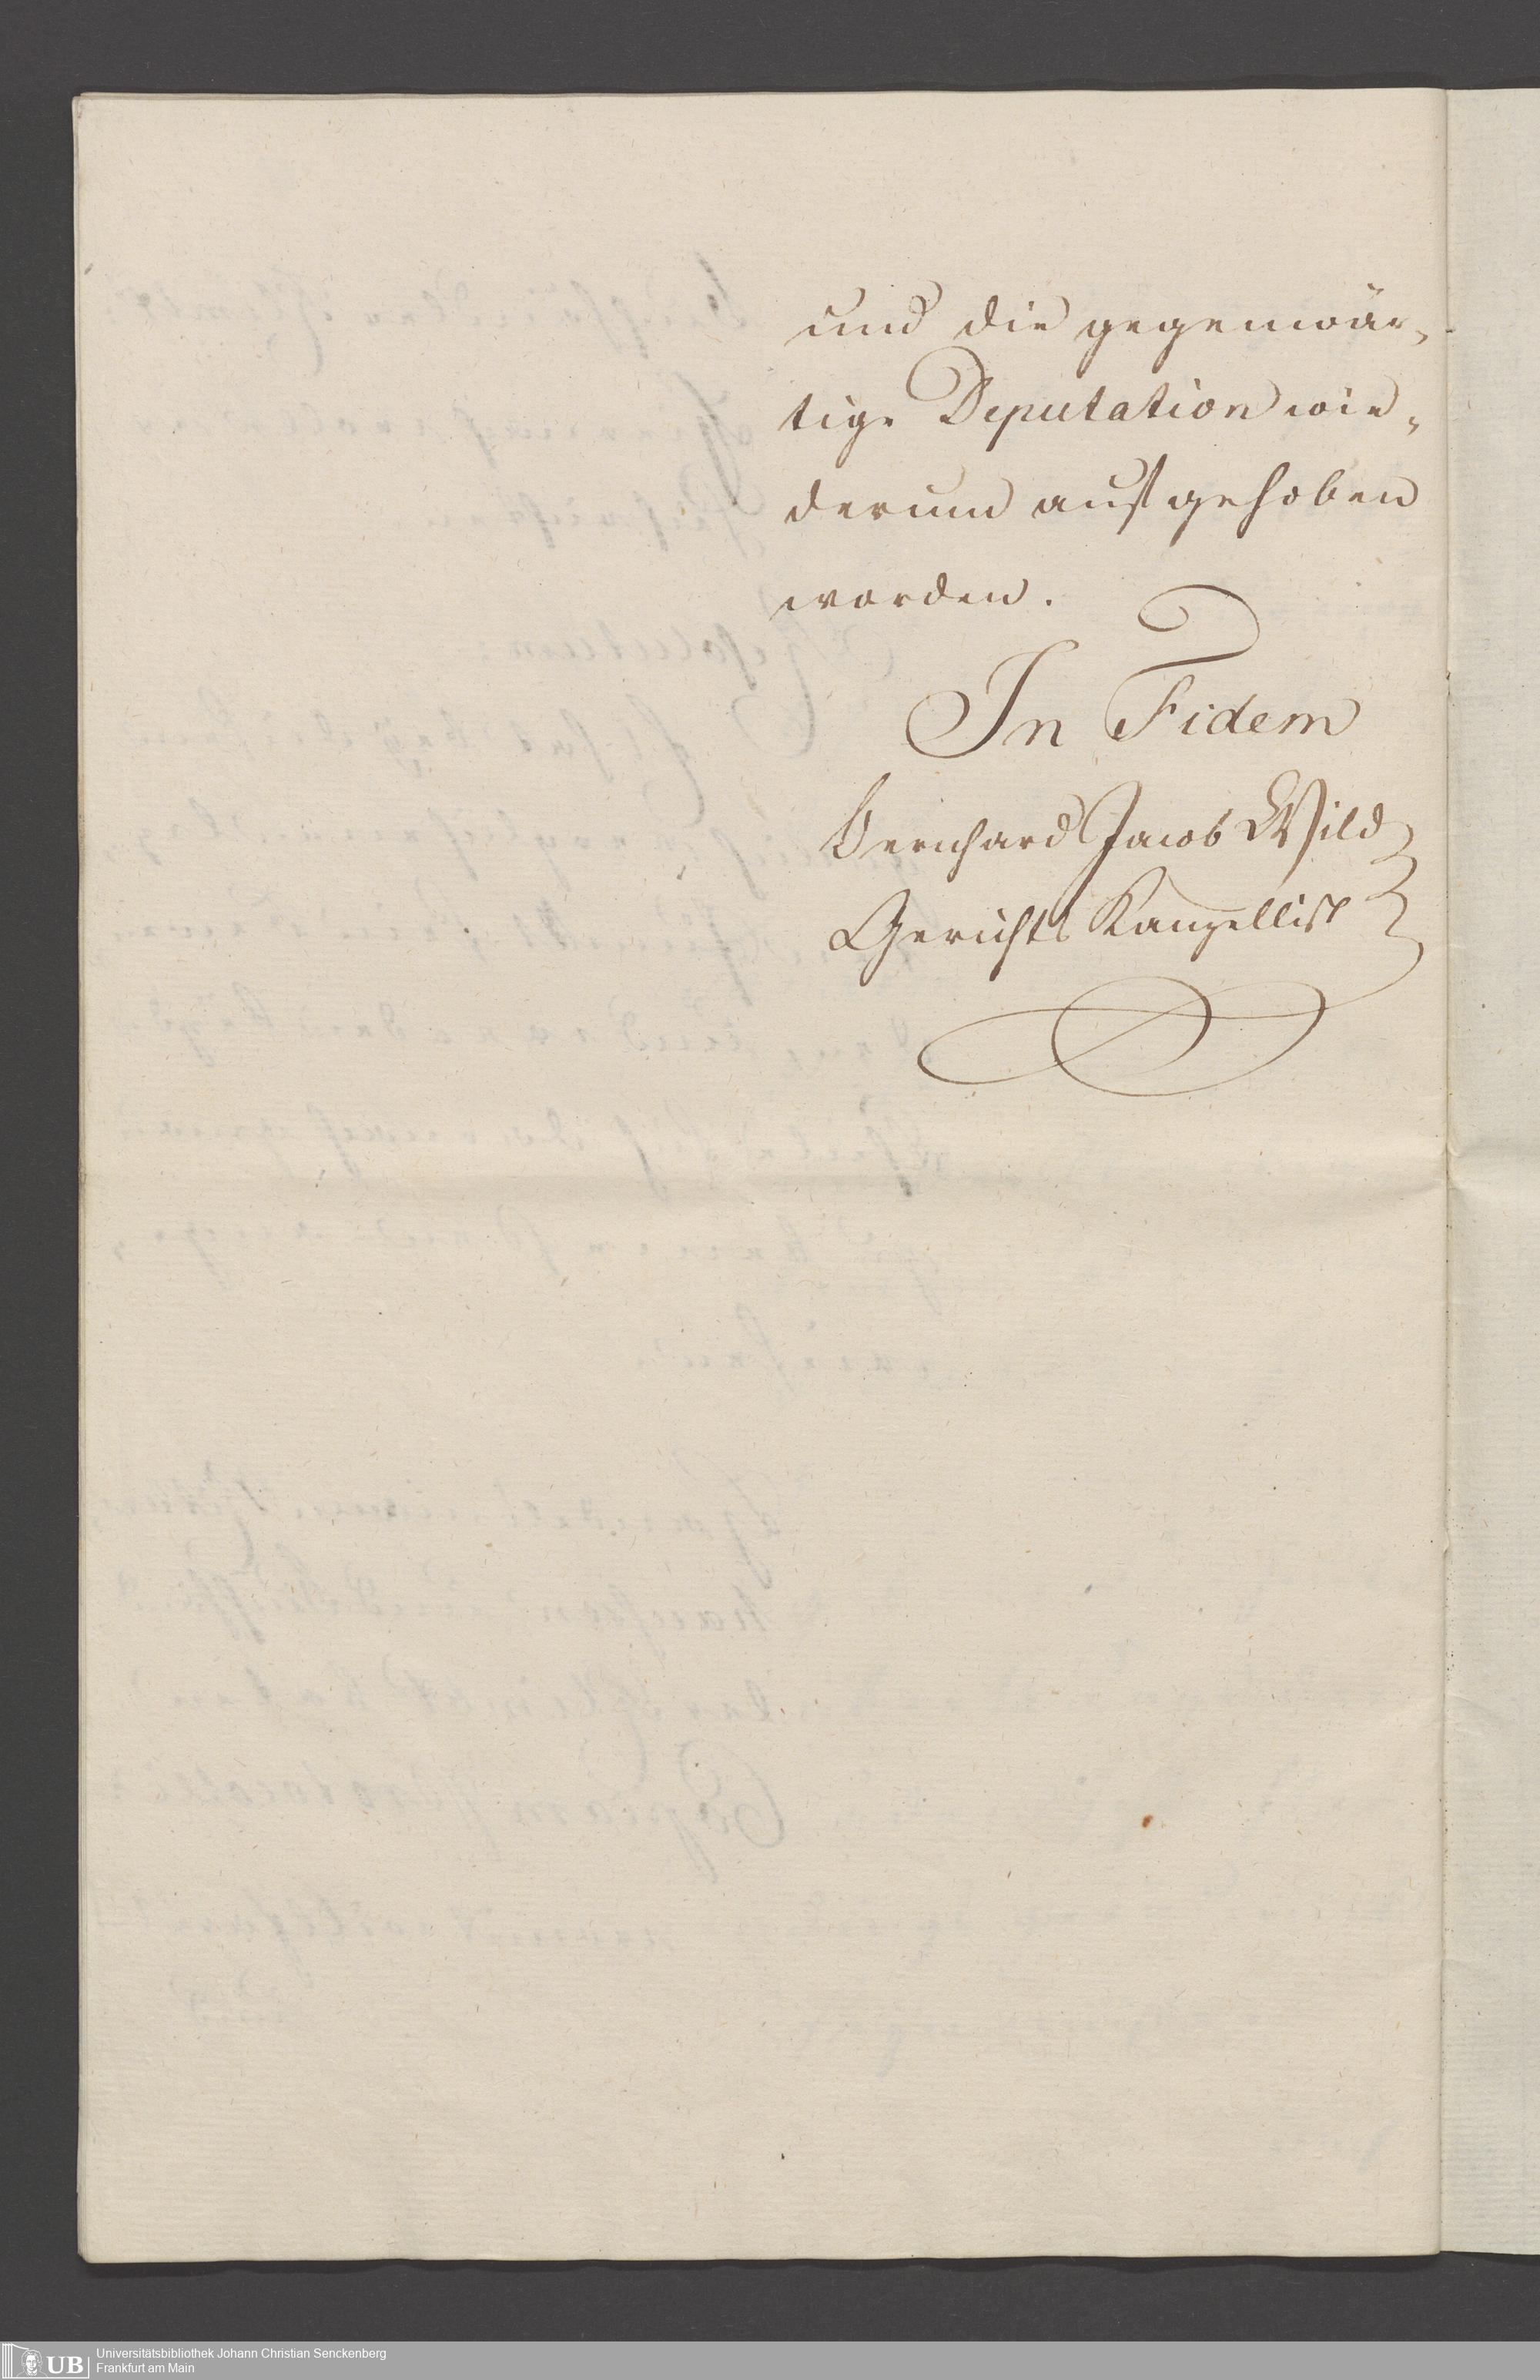 und die gegenwär„
tige Deputation wie„
derum aufgehoben
worden.
In Fidem
Bernhard Jacob Wild
Gerichts Kanzellist
UB
Universitätsbibliothek Johann Christian Senckenberg
Frankfurt am Main